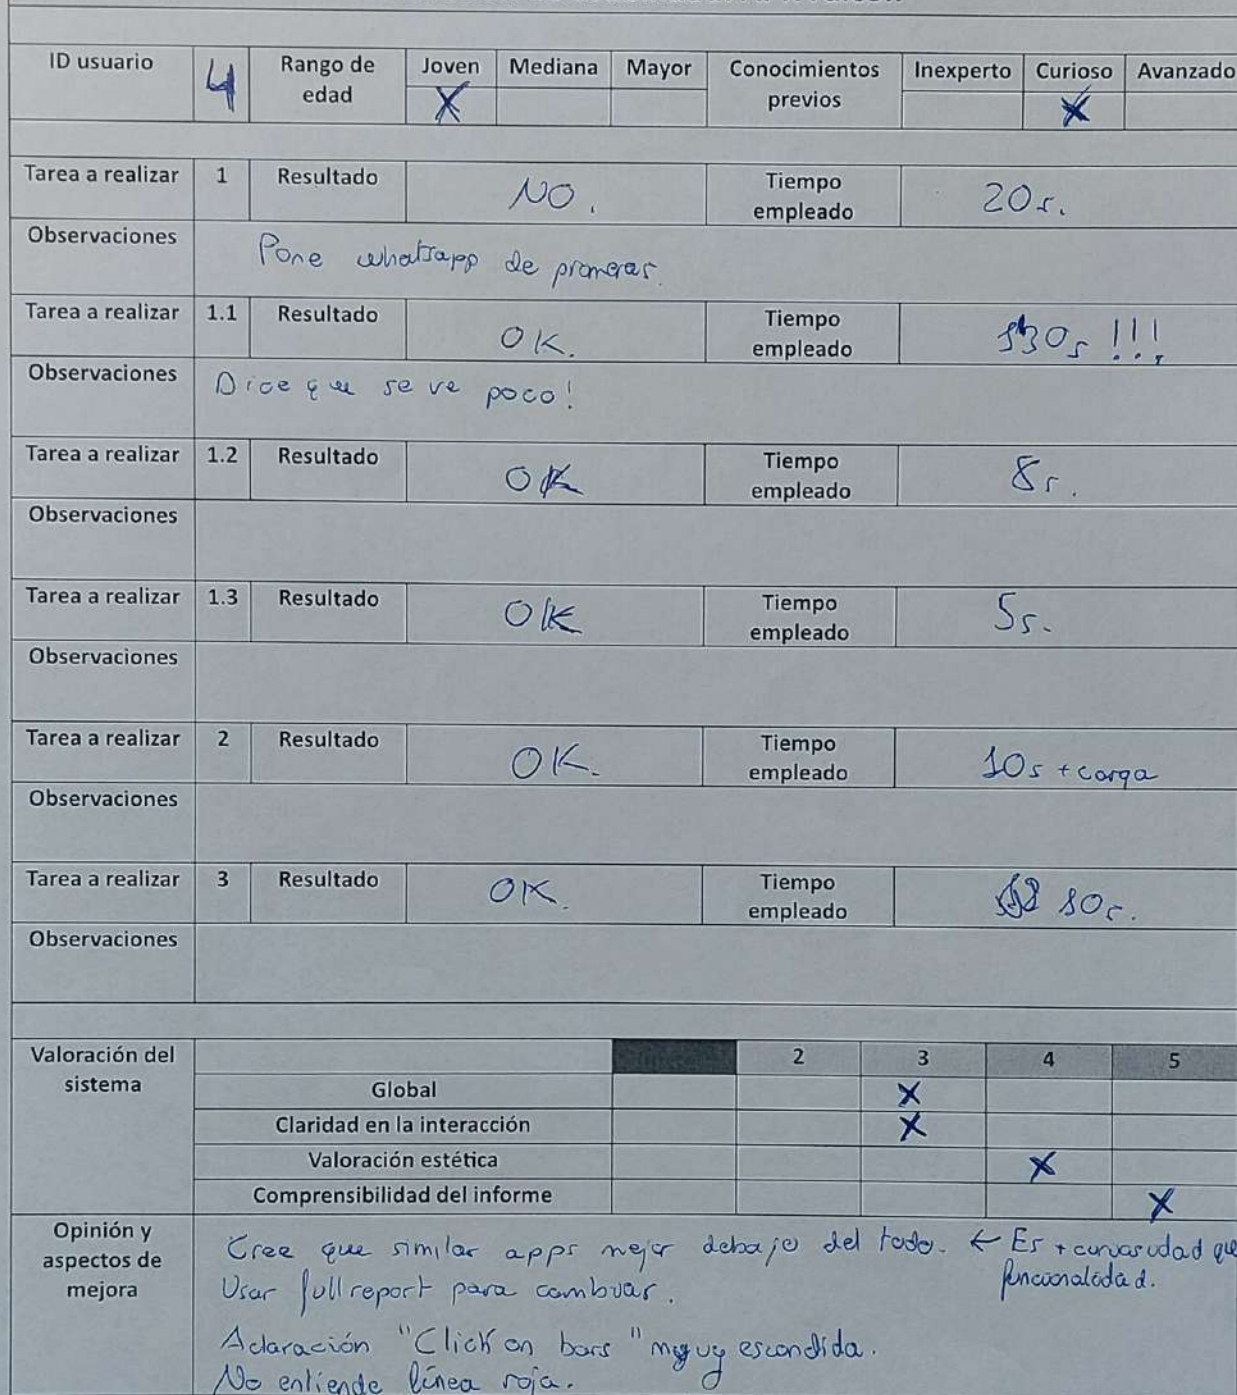 ID usuario 4 Rango de edad Joven Mediana Mayor Conocimientos previos Inexperto Curioso Avanzado
X X
Tarea a realizar 1 Resultado NO. Tiempo empleado 20s.
Observaciones Pone whatsapp de primeras.
Tarea a realizar 1.1 Resultado OK. Tiempo empleado 30s !!!
Observaciones Dice que se ve poco!
Tarea a realizar 1.2 Resultado OK Tiempo empleado 8s.
Observaciones
Tarea a realizar 1.3 Resultado OK Tiempo empleado 5s.
Observaciones
Tarea a realizar 2 Resultado OK. Tiempo empleado 10s + carga
Observaciones
Tarea a realizar 3 Resultado OK. Tiempo empleado
Observaciones
Valoración del sistema 2 3 4 5
Global X
Claridad en la interacción X
Valoración estética X
Comprensibilidad del informe X
Opinión y aspectos de mejora
Cree que similar apps mejor debajo del todo. ← Es + curiosidad que
funcionalidad.
Usar full report para cambiar.
Aclaración "Click on bars" muy escondida.
No entiende línea roja.